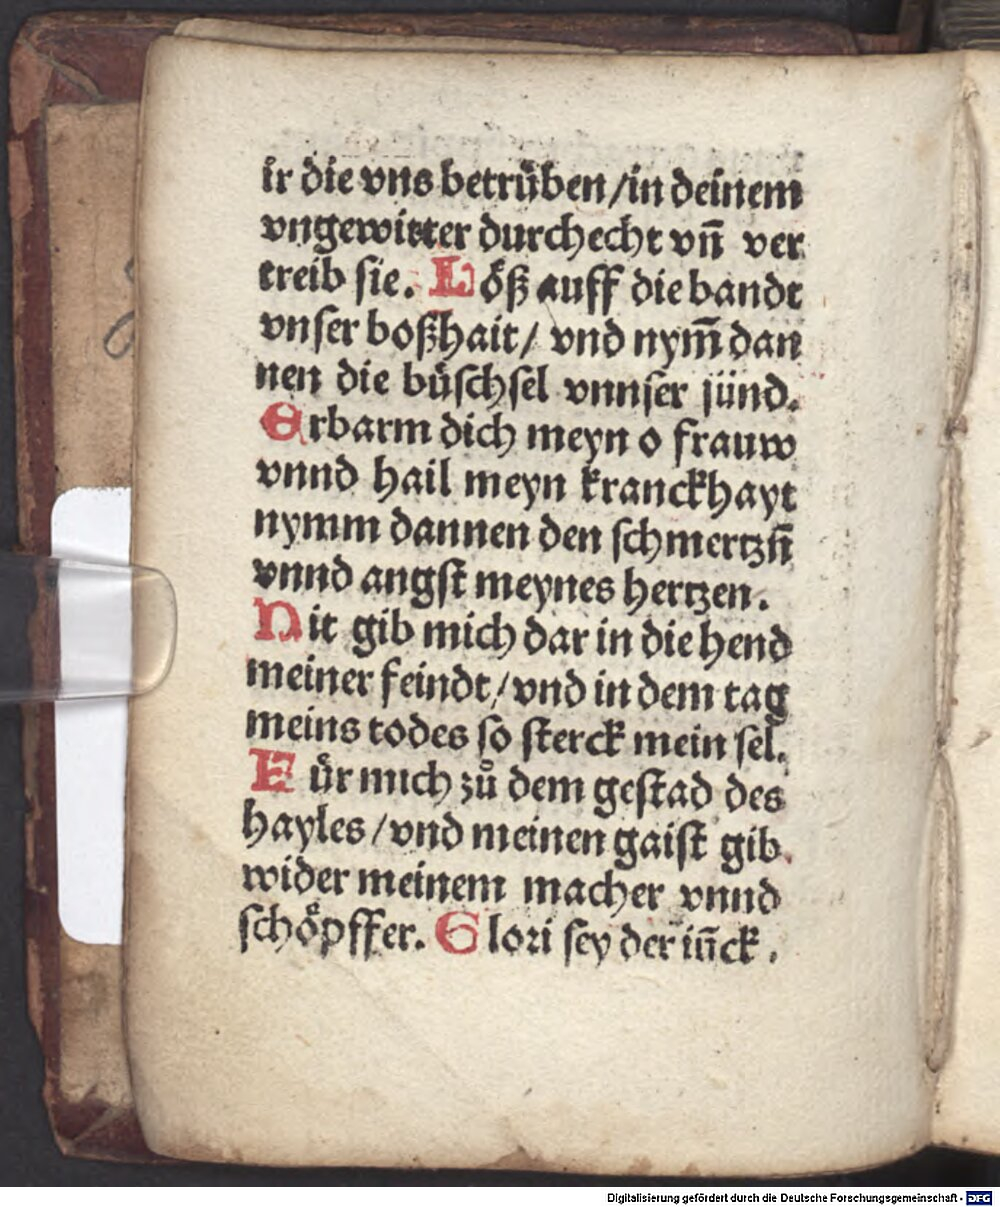 ir die vns betrüben/in deinem
vngewitter durchecht vn̄ ver
treib sie. Löß auff die bandt
vnser boßhait/ vnd nym̄ dan
nen die büschsel vnnser sünd.
Erbarm dich meyn o frauw
vnnd hail meyn kranckhayt
nymm dannen den schmertzn̄
vnnd angst meynes hertzen.
Nit gib mich dar in die hend
meiner feindt/vnd in dem tag
meins todes so sterck mein sel.
Fuͤr mich zuͦ dem gestad des
hayles/vnd meinen gaist gib
wider meinem macher vnnd
schoͤpffer. Glori sey der iūck.
Digitalisierung gefördert durch die Deutsche Forschungsgemeinschaft - DFG